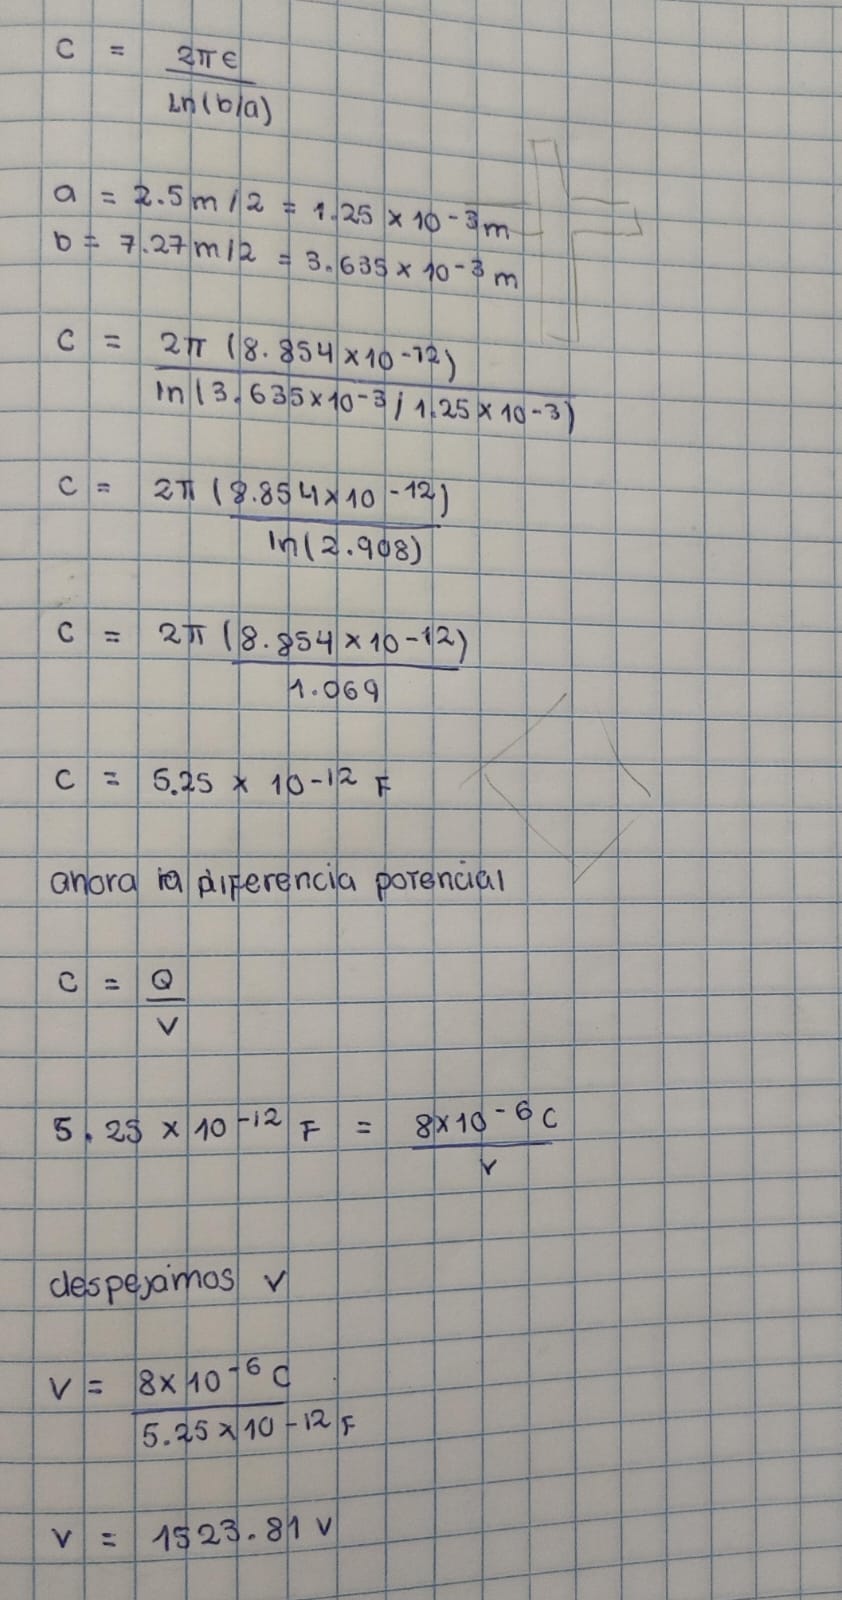 C = 2πε
ln(b/a)
a = 2.5m/2 = 1.25 x 10-3m
b = 7.27m/2 = 3.635 x 10-3m
C = 2π (8.854x10-12)
ln(3.635x10-3/1.25x10-3)
C = 2π (8.854x10-12)
ln(2.908)
C = 2π (8.854x10-12)
1.069
C = 5.25 x 10-12 F
ahora la diferencia potencial
C = Q
V
5.25 x 10-12 F = 8x10-6 C
V
despejamos V
V = 8x10-6 C
5.25x10-12 F
V = 1523.81 V